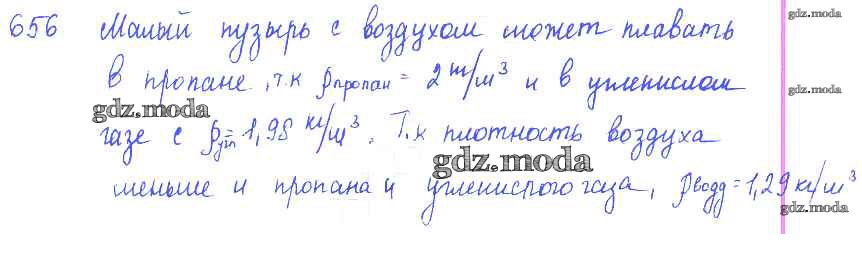 656 Малый пузырь с воздухом может плавать
в пропане, т.к ρпропан = 2 кг/м³ и в углекислом
газе с ρугл = 1,98 кг/м³. Т.к плотность воздуха
меньше и пропана и углекислого газа, ρвозд = 1,29 кг/м³
gdz.moda
gdz.moda
gdz.moda
gdz.moda
gdz.moda
gdz.moda